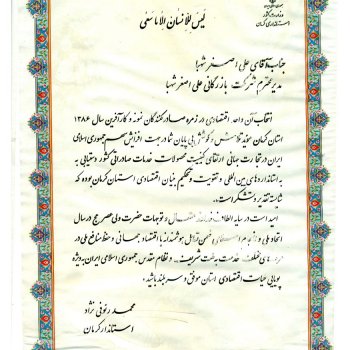 لیس للانسان الا ما سعی
جمهوری اسلامی ایران
وزارت کشور
استانداری کرمان
جناب آقای علی اصغر شهبا
مدیر محترم شرکت بازرگانی علی اصغر شهبا
انتخاب آن واحد اقتصادی در زمره صادرکنندگان نمونه و کارآفرین سال ۱۳۸۶
استان کرمان نمونه تلاش و کوشش بی پایان شما در جهت افزایش سهم جمهوری اسلامی
ایران در تجارت جهانی ارتقای کیفیت محصولات خدمات صادراتی کشور دستیابی به
استانداردهای بین المللی و تقویت و تحکیم بنیان اقتصادی استان کرمان بوده که
شایسته تقدیر و تشکر است.
امید است در سایه الطاف خداوند متعال و توجهات حضرت ولی عصر عج در سال
اتحاد ملی و انسجام اسلامی ضمن تعامل هوشمندانه با اقتصاد جهانی و حفظ منافع ملی در
عرصه های مختلف خدمت به ملت شریف و نظام مقدس جمهوری اسلامی ایران به ویژه
پویایی حیات اقتصادی استان موفق و سربلند باشید.
محمد رئوفی نژاد
استاندار کرمان